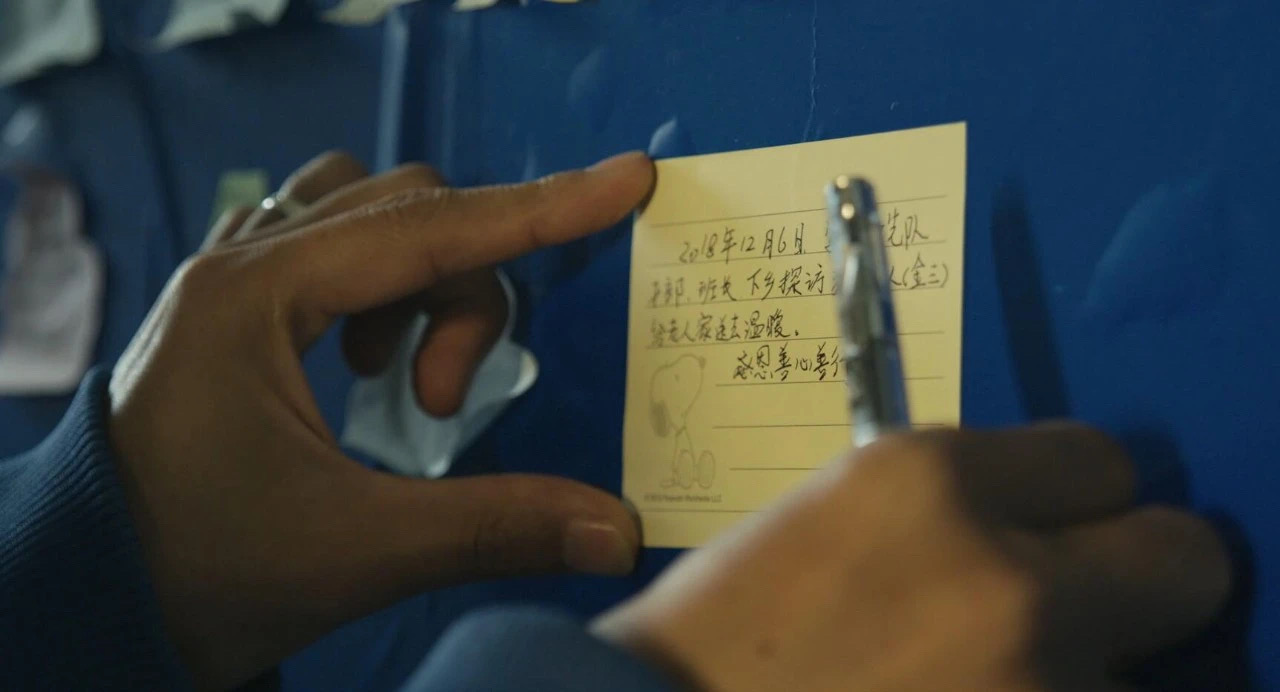 2018年12月6日 先队
干部、班长 下乡探访 人(金三)
给老人家送去温暖。
感恩善心善行